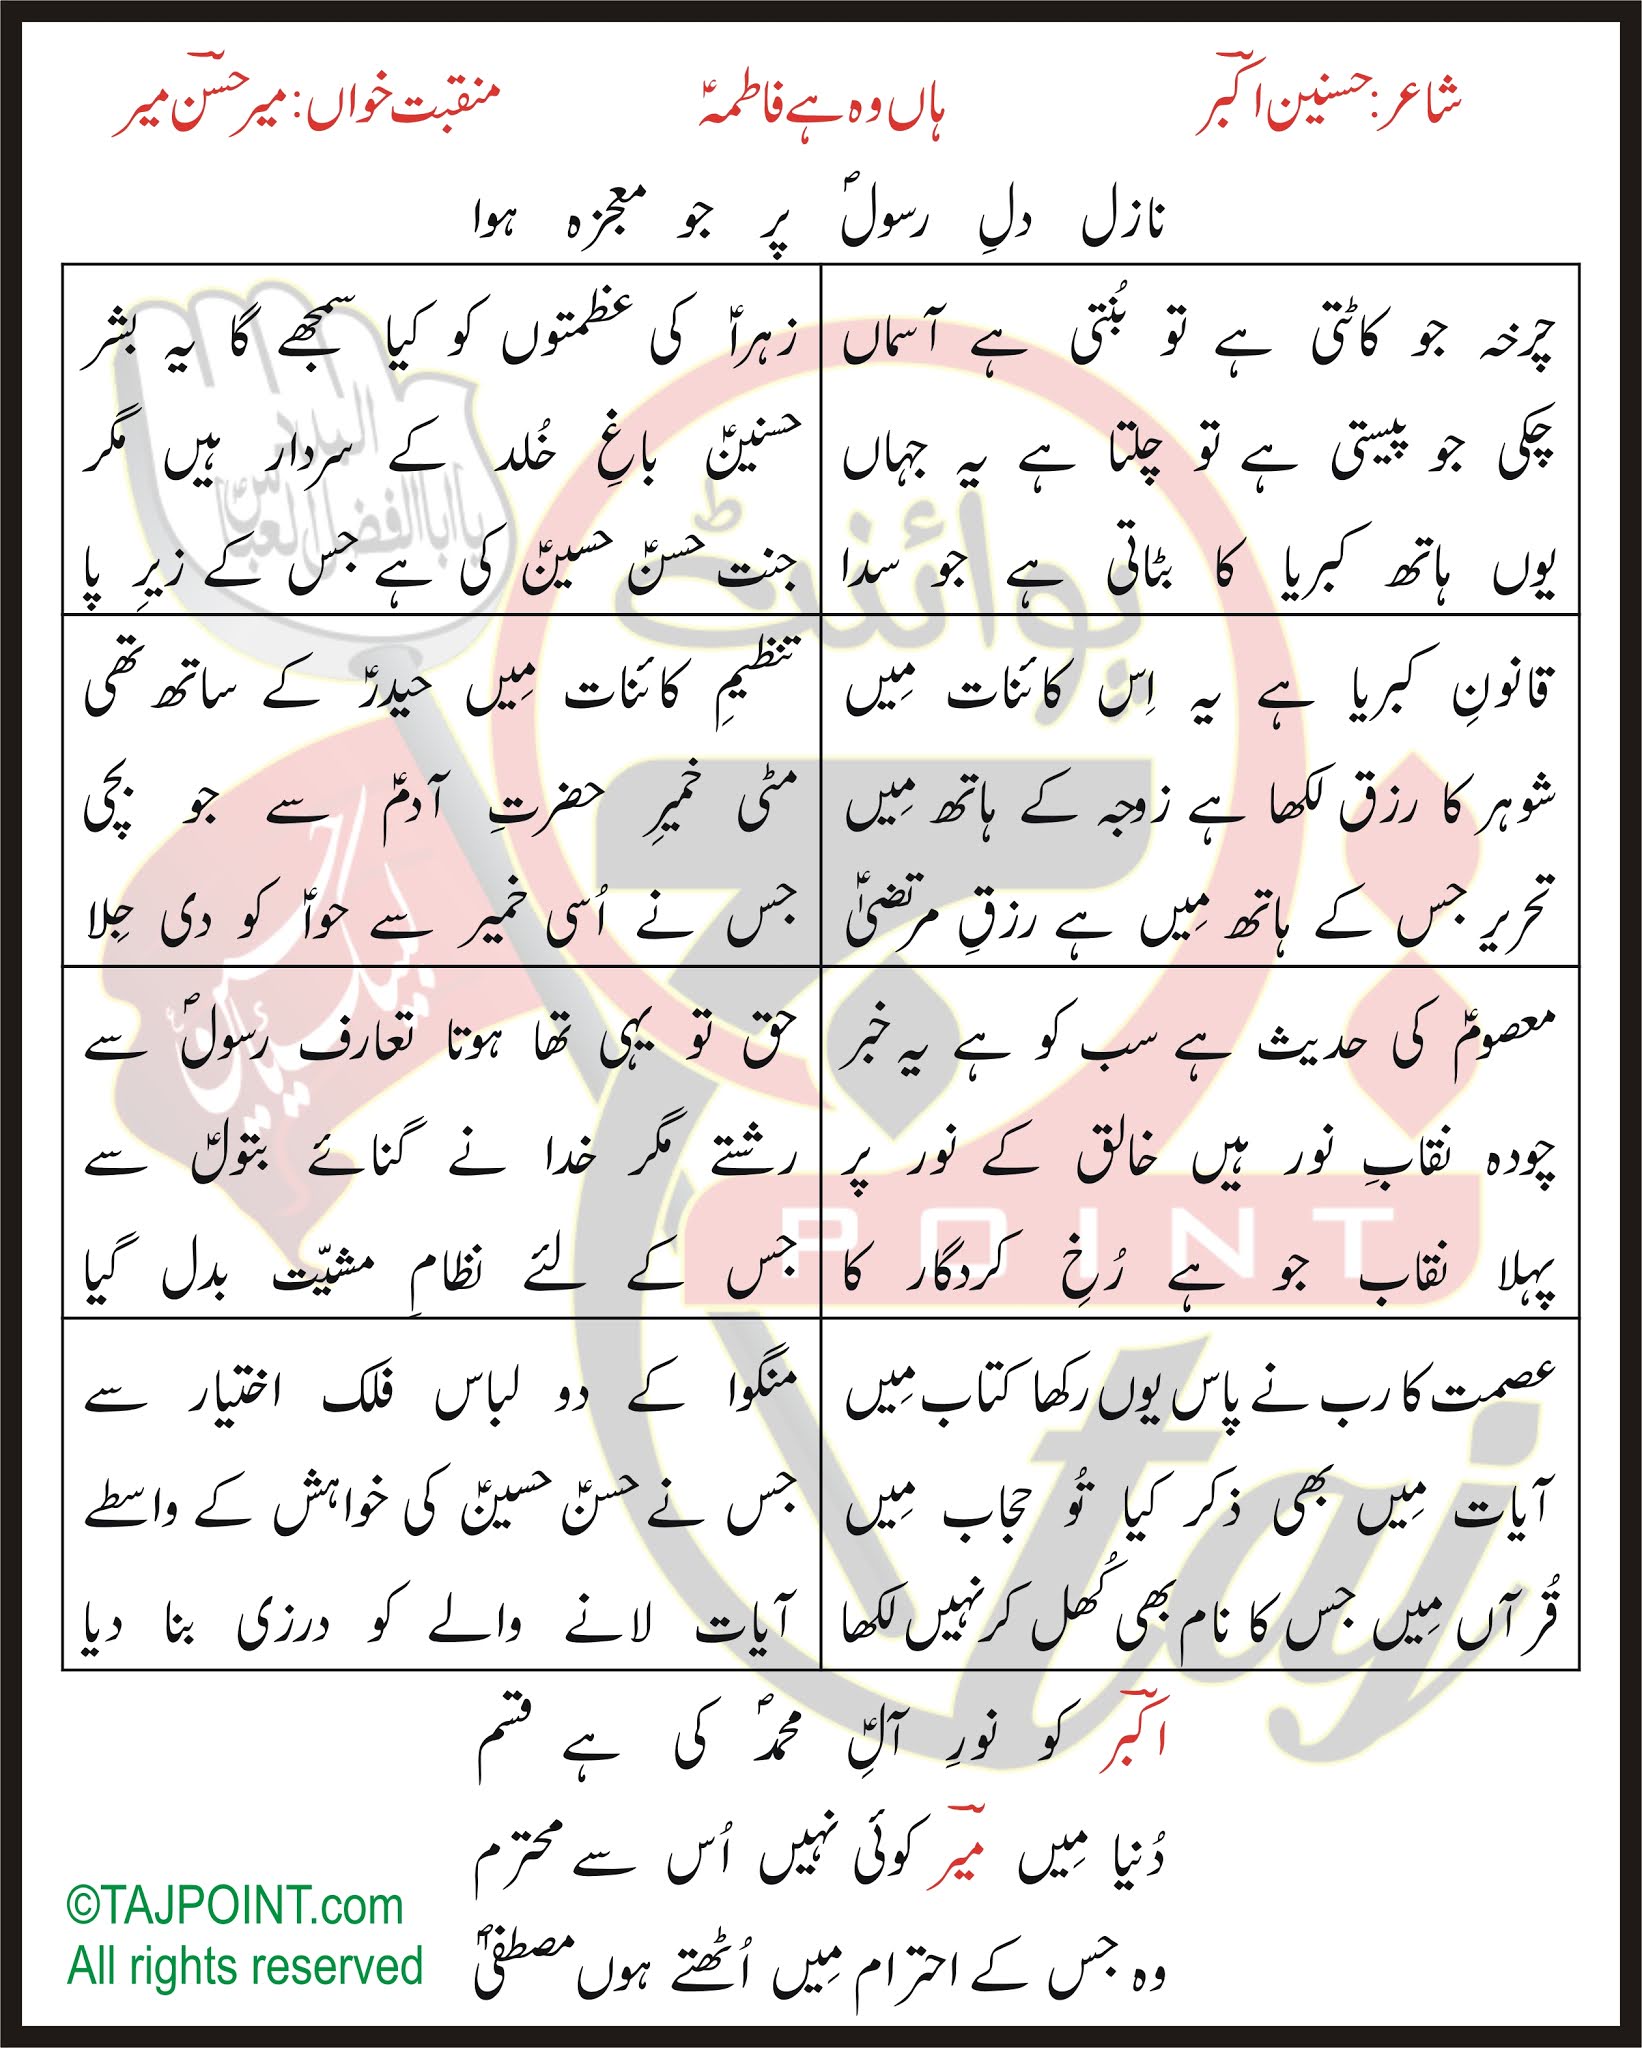 شاعر: حسنین اکبر
ہاں وہ ہے فاطمہؑ
منقبت خواں: میر حسن میر
نازل دلِ رسولؐ پر جو معجزہ ہوا
چرخہ جو کاٹتی ہے تو بُنتی ہے آسماں
چکی جو پیستی ہے تو چلتا ہے یہ جہاں
یوں ہاتھ کبریا کا بٹاتی ہے جو سدا
زہراؑ کی عظمتوں کو کیا سمجھے گا یہ بشر
حسنینؑ باغِ خُلد کے سردار ہیں مگر
جنت حسنؑ حسینؑ کی ہے جس کے زیرِ پا
قانونِ کبریا ہے یہ اِس کائنات مِیں
شوہر کا رزق لکھا ہے زوجہ کے ہاتھ مِیں
تحریر جس کے ہاتھ مِیں ہے رزقِ مرتضیٰؑ
تنظیمِ کائنات مِیں حیدرؑ کے ساتھ تھی
مٹی خمیرِ حضرتِ آدمؑ سے جو بچی
جس نے اُسی خمیر سے حواؑ کو دی جِلا
معصومؑ کی حدیث ہے سب کو ہے یہ خبر
چودہ نقابِ نور ہیں خالق کے نور پر
پہلا نقاب جو ہے رُخِ کردگار کا
حق تو یہی تھا ہوتا تعارف رسولؐ سے
رشتے مگر خدا نے گنائے بتولؑ سے
جس کے لئے نظامِ مشیّت بدل گیا
عصمت کا رب نے پاس یوں رکھا کتاب مِیں
آیات مِیں بھی ذکر کیا تُو حجاب مِیں
قُرآں مِیں جس کا نام بھی کُھل کر نہیں لکھا
منگوا کے دو لباس فلک اختیار سے
جس نے حسنؑ حسینؑ کی خواہش کے واسطے
آیات لانے والے کو درزی بنا دیا
اکبر کو نورِ آلِؑ محمدؐ کی ہے قسم
دُنیا مِیں میر کوئی نہیں اُس سے محترم
وہ جس کے احترام مِیں اُٹھتے ہوں مصطفیٰؐ
©TAJPOINT.com
All rights reserved
پوائنٹ
POINT
taj